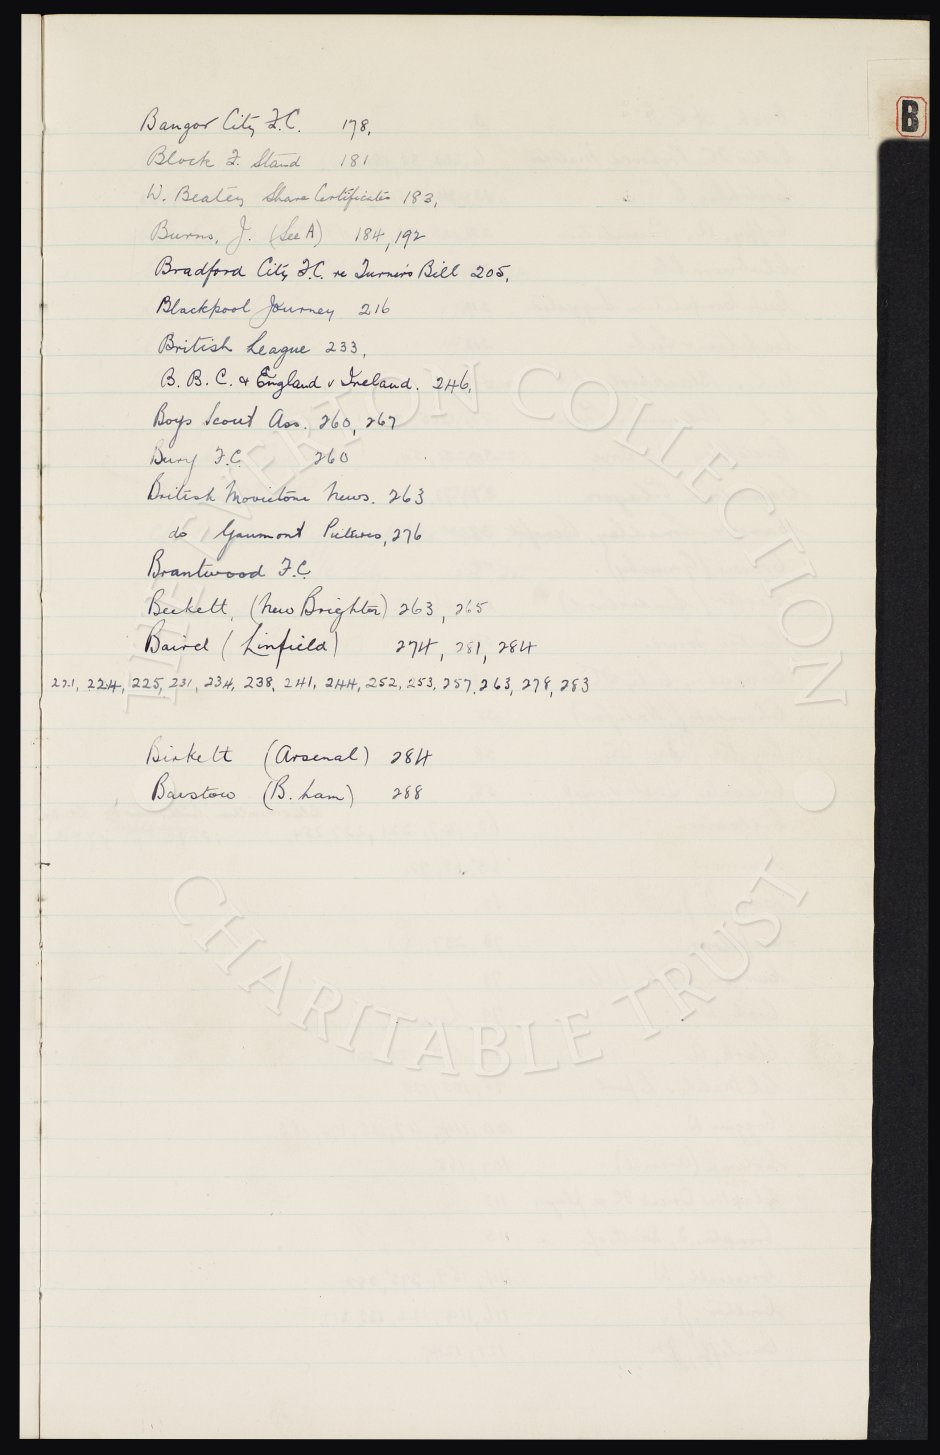 B
Bangor City F.C. 178,
Block F. Stand 181
W. Beatey Share Certificates 183,
Burns, J. (See A) 184, 192
Bradford City F.C. re Turner's Bill 205,
Blackpool Journey 216
British League 233,
B. B. C. & England v Ireland. 246,
Boys Scout Ass. 260, 267
Bury F.C. 260
British Movietone News. 263
do Gaumont Pictures, 276
Brantwood F.C.
Beckett, (New Brighton) 263, 265
Baird (Linfield) 274, 281, 284
221, 224, 225, 231, 234, 238, 241, 244, 252, 253, 257, 263, 278, 283
Birkett (Arsenal) 284
Barstow (B. ham) 288
THE EVERTON COLLECTION
CHARITABLE TRUST